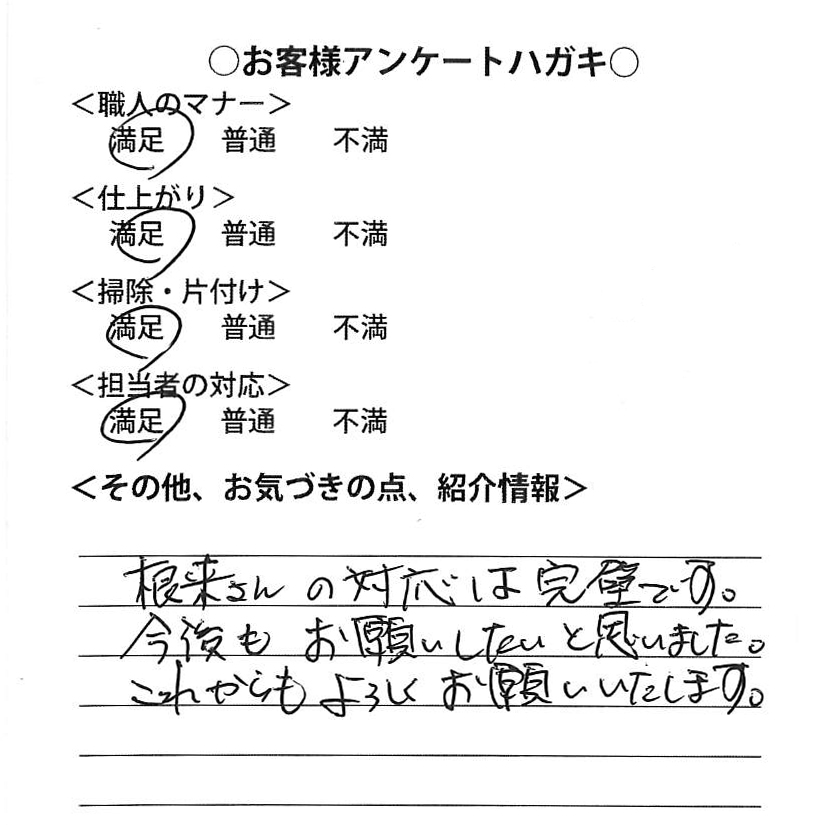 ○お客様アンケートハガキ○
＜職人のマナー＞
満足 普通 不満
＜仕上がり＞
満足 普通 不満
＜掃除・片付け＞
満足 普通 不満
＜担当者の対応＞
満足 普通 不満
＜その他、お気づきの点、紹介情報＞
根来さんの対応は完璧です。
今後もお願いしたいと思いました。
これからもよろしくお願いいたします。